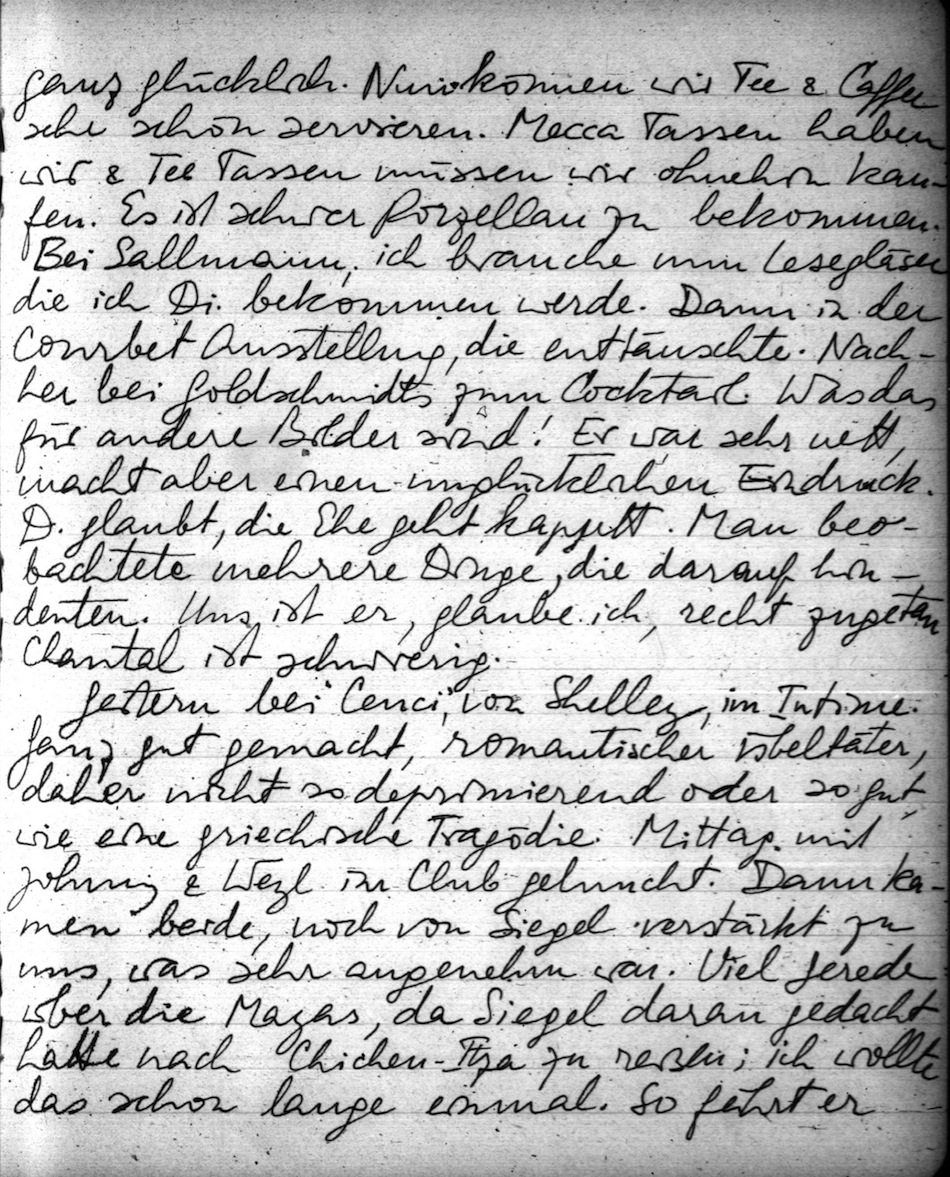 ganz glücklich. Nun können wir Tee & Caffee
sehr schön servieren. Mecca Tassen haben
wir & Tee Tassen müssen wir ohnehin kau-
fen. Es ist schwer Porzellan zu bekommen.
Bei Sallmann, ich brauche nun Lesegläser
die ich Di. bekommen werde. Dann in der
Courbet Ausstellung, die enttäuschte. Nach-
her bei Goldschmidts zum Cocktail. Was das
für andere Bilder sind! Er war sehr nett,
macht aber einen unglücklichen Eindruck.
D. glaubt, die Ehe geht kaputt. Man beo-
bachtete mehrere Dinge, die darauf hin-
deuten. Uns ist er, glaube ich, recht zugetan
Chantal ist schwierig.
Gestern bei "Cenci", von Shelley, im Intime.
Ganz gut gemacht, romantischer Übeltäter,
daher nicht so deprimierend oder so gut
wie eine griechische Tragödie. Mittag mit
Johnny & Wezl im Club geluncht. Dann ka-
men beide, noch von Siegel verstärkt zu
uns, was sehr angenehm war. Viel Gerede
über die Mayas, da Siegel daran gedacht
hatte nach Chichen-Itza zu reisen; ich wollte
das schon lange einmal. So fährt er